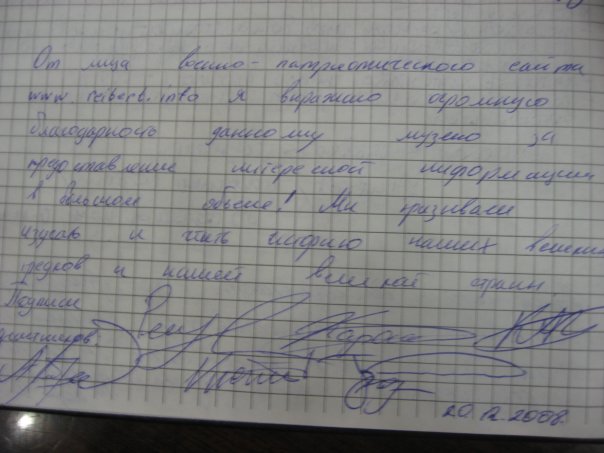 От лица военно-патриотического сайта
www.reibert.info я выражаю огромную
благодарность данному музею за
предоставление интересной информации
в большом объеме! Мы призываем
изучать и чтить историю наших великих
предков и нашей великой страны
Подписи
20.12.2008.